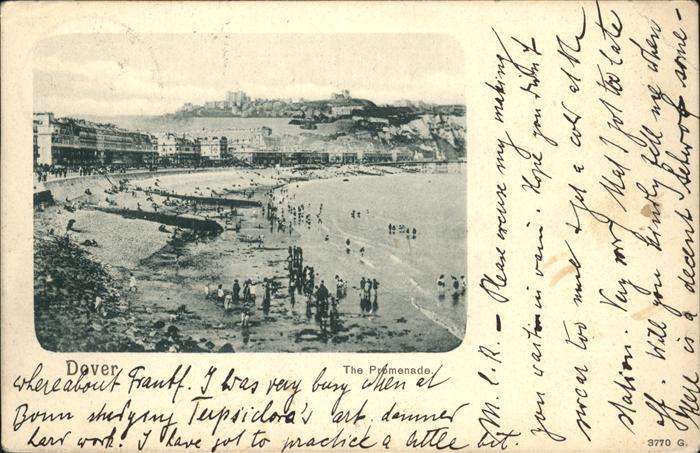 Dover
The Promenade.
M. C. R. – Please excuse my making
you wait in vain. Hope you didn't
swear too much & get a cold at the
station. Very sorry that I got too late
off. Will you kindly tell me when
there is a decent some-
whereabout Frankf. I was very busy when at
Bonn studying Terpsichora's art, damned
hard work. I have got to practice a little bit.
3770 G.